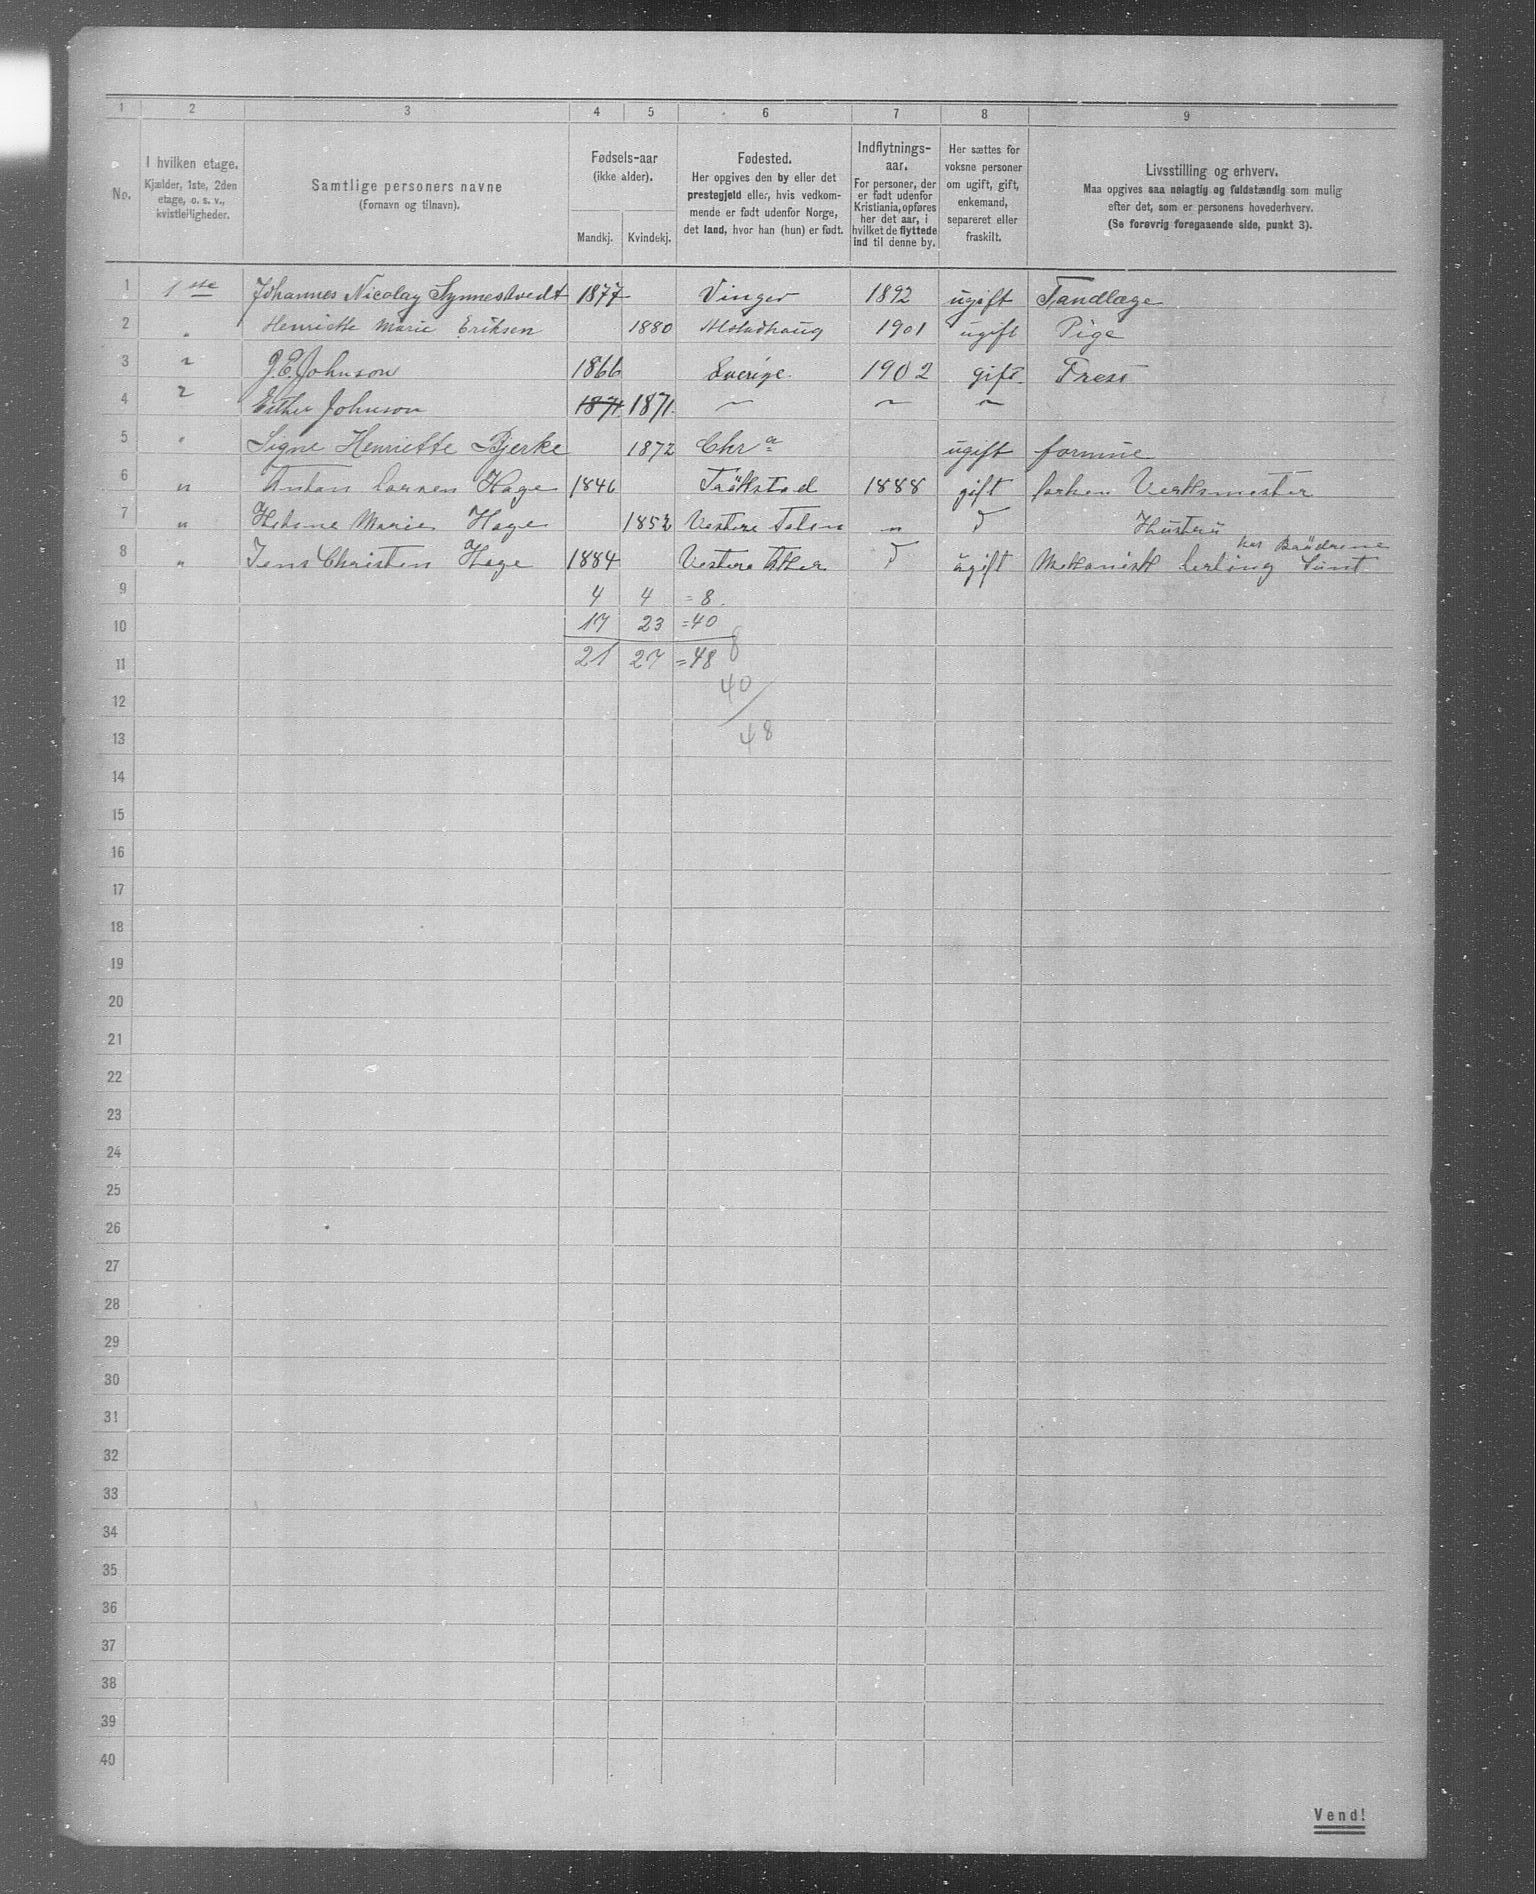 1 2 3 4 5 6 7 8 9
No.
I hvilken etage.
Kjælder, 1ste, 2den
etage, o. s. v.,
kvistleiligheder.
Samtlige personers navne
(Fornavn og tilnavn).
Fødsels-aar
(ikke alder).
Mandkj. Kvindekj.
Fødested.
Her opgives den by eller det
prestegjeld eller, hvis vedkom-
mende er født udenfor Norge,
det land, hvor han (hun) er født.
Indflytnings-
aar.
For personer, der
er født udenfor
Kristiania, opføres
her det aar, i
hvilket de flyttede
ind til denne by.
Her sættes for
voksne personer
om ugift, gift,
enkemand,
separeret eller
fraskilt.
Livsstilling og erhverv.
Maa opgives saa nøiagtig og fuldstændig som mulig
efter det, som er personens hovederhverv.
(Se forøvrig foregaaende side, punkt 3).
1 1ste Johannes Nicolay Synnestvedt 1877 Vinger 1892 ugift Tandlæge
2 " Henriette Marie Eriksen 1880 Alstadhaug 1901 ugift Pige
3 " J. E. Johnson 1866 Sverige 1902 gift
4 " Esther Johnson 1871 1871 " " "
5 " Signe Henriette Bjerke 1872 Chr.a ugift formue
6 " Anton Hage 1846 Trökstad 1888 gift Verksmester
7 " Marie Hage 1852 Vestre " D Hustru
8 " Jens Christen Hage 1884 Vestre D ugift Mekanisk
hos Brödrene
9 4 4 = 8
10 17 23 = 40
11 21 27 = 48
8
12 40
13 48
14
15
16
17
18
19
20
21
22
23
24
25
26
27
28
29
30
31
32
33
34
35
36
37
38
39
40
Vend!